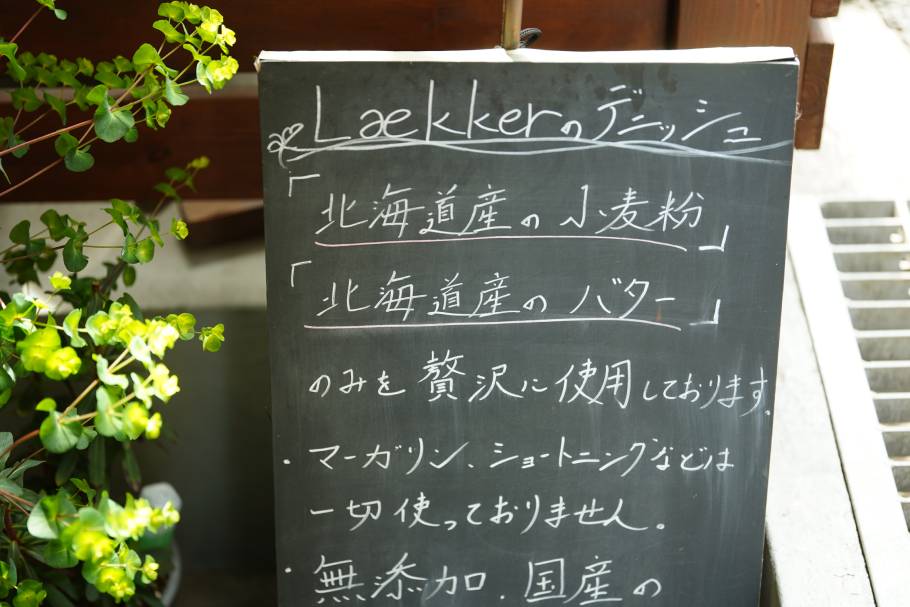 Laekkerのデニッシュ
「北海道産の小麦粉」
「北海道産のバター」
のみを贅沢に使用しております。
・マーガリン、ショートニングなどは
一切使っておりません。
・無添加、国産の